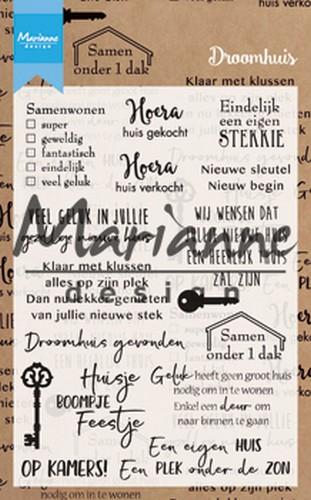 Marianne
design
Samen
onder 1 dak
Droomhuis
huis verko
Klaar met klussen
Samenwonen
super
geweldig
fantastisch
eindelijk
veel geluk
Hoera
huis gekocht
Hoera
huis verkocht
Eindelijk
een eigen
STEKKIE
Nieuwe sleutel
Nieuw begin
VEEL GELUK IN JULLIE
gezellige nieuwe huis
WIJ WENSEN DAT
ZAL ZIJN
Marianne
design
Klaar met klussen
alles op zijn plek
Dan nu lekker genieten
van jullie nieuwe stek
Droomhuis gevonden
Samen
onder 1 dak
Huisje
BOOMPJE
Feestje
Geluk heeft geen groot huis
nodig om in te wonen
Enkel een deur om
naar binnen te gaan
Een eigen HUIS
OP KAMERS!
Een PLEK onder de ZON
nodig om in te wonen
alles op zijn plek